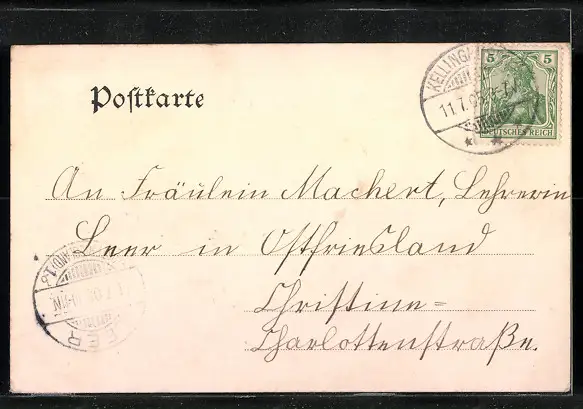 Postkarte
5 5
DEUTSCHES REICH
11.7.
An Fräulein Machert, Lehrerin
Leer in Ostfriesland
Christine=
Charlottenstraße.
LEER